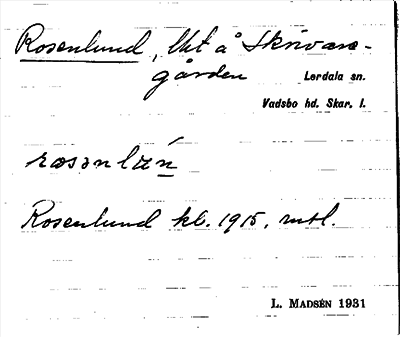 Rosenlund, lht å Skrivare-
gården Lerdala sn.
Vadsbo hd. Skar. l.
Rosenlund kl. 1915, mtl.
L. MADSÉN 1931